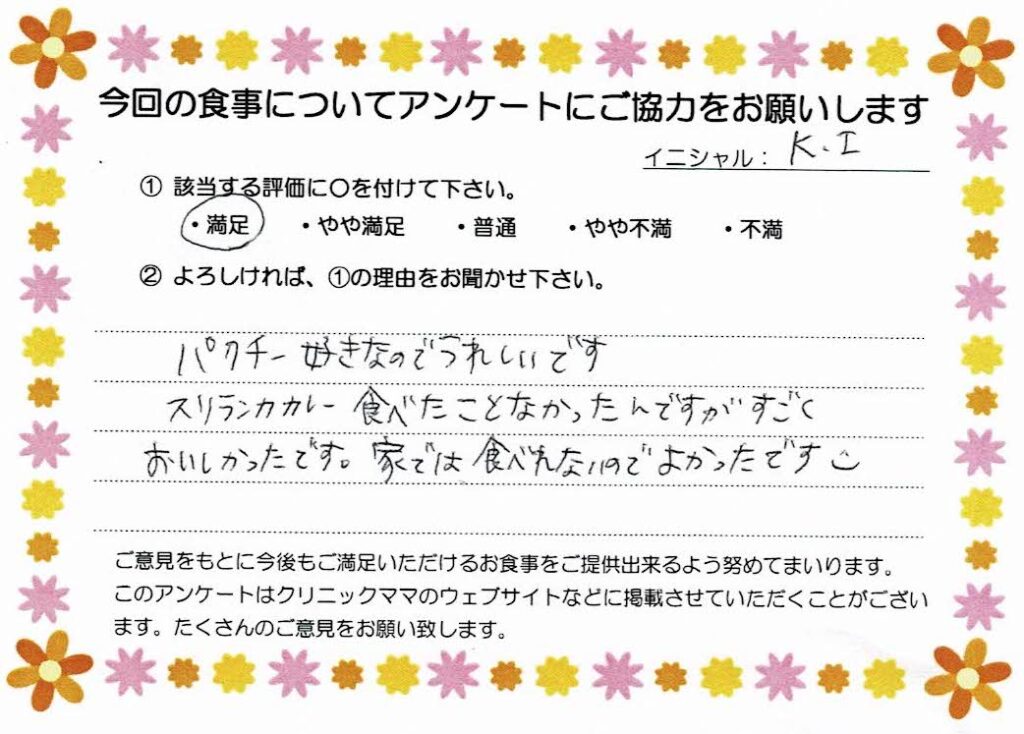 今回の食事についてアンケートにご協力をお願いします
イニシャル： K.I
① 該当する評価に○を付けて下さい。
・満足 ・やや満足 ・普通 ・やや不満 ・不満
② よろしければ、①の理由をお聞かせ下さい。
パクチー好きなのでうれしいです
スリランカカレー食べたことなかったんですがすごく
おいしかったです。家では食べれないのでよかったです
ご意見をもとに今後もご満足いただけるお食事をご提供出来るよう努めてまいります。
このアンケートはクリニックママのウェブサイトなどに掲載させていただくことがござい
ます。たくさんのご意見をお願い致します。